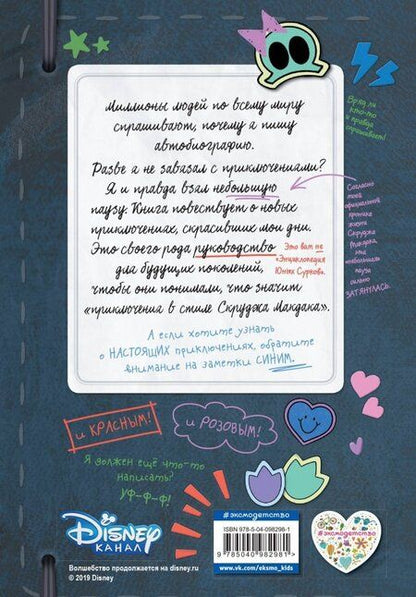 Миллионы людей по всему миру
спрашивают, почему я пишу
автобиографию.
Разве я не завязал с приключениями?
Я и правда взял небольшую
паузу. Книга повествует о новых
приключениях, скрасивших мои дни.
Это своего рода руководство
для будущих поколений,
чтобы они понимали, что значит
«приключения в стиле Скруджа Макдака».
Вряд ли
кто-то
и правда
спрашивает!
Согласно
твоей
официальной
хронике
жизни
Скруджа
Макдака,
эта
«небольшая»
пауза
сильно
ЗАТЯНУЛАСЬ.
Это вам не
«Энциклопедия
Юных Сурков».
А если хотите узнать
о НАСТОЯЩИХ приключениях, обратите
внимание на заметки СИНИМ.
и КРАСНЫМ!
и РОЗОВЫМ!
Я должен ещё что-то
написать?
УФ-Ф-Ф!
Disney
КАНАЛ
Волшебство продолжается на disney.ru
© 2019 Disney
#эксмодетство
ISBN 978-5-04-098298-1
9 785040 982981 >
www.vk.com/eksmo_kids
#эксмодетство